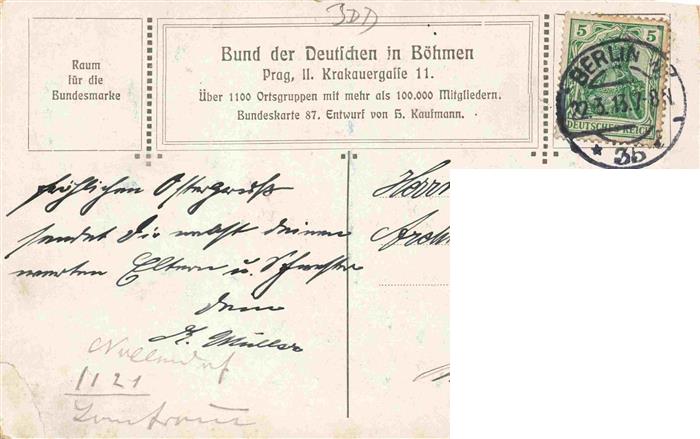 BDD
Raum
für die
Bundesmarke
Bund der Deutschen in Böhmen
Prag, II. Krakauergasse 11.
Über 1100 Ortsgruppen mit mehr als 100.000 Mitgliedern.
Bundeskarte 87. Entwurf von H. Kaufmann.
5 5
DEUTSCHES REICH
BERLIN
22.3.13.7-8N
* 3b
fröhlichen Ostergruß
sendet Dir nebst deinen
werten Eltern u. Schwester
Dein
K. Müller
Herrn
Nollendorf
1121